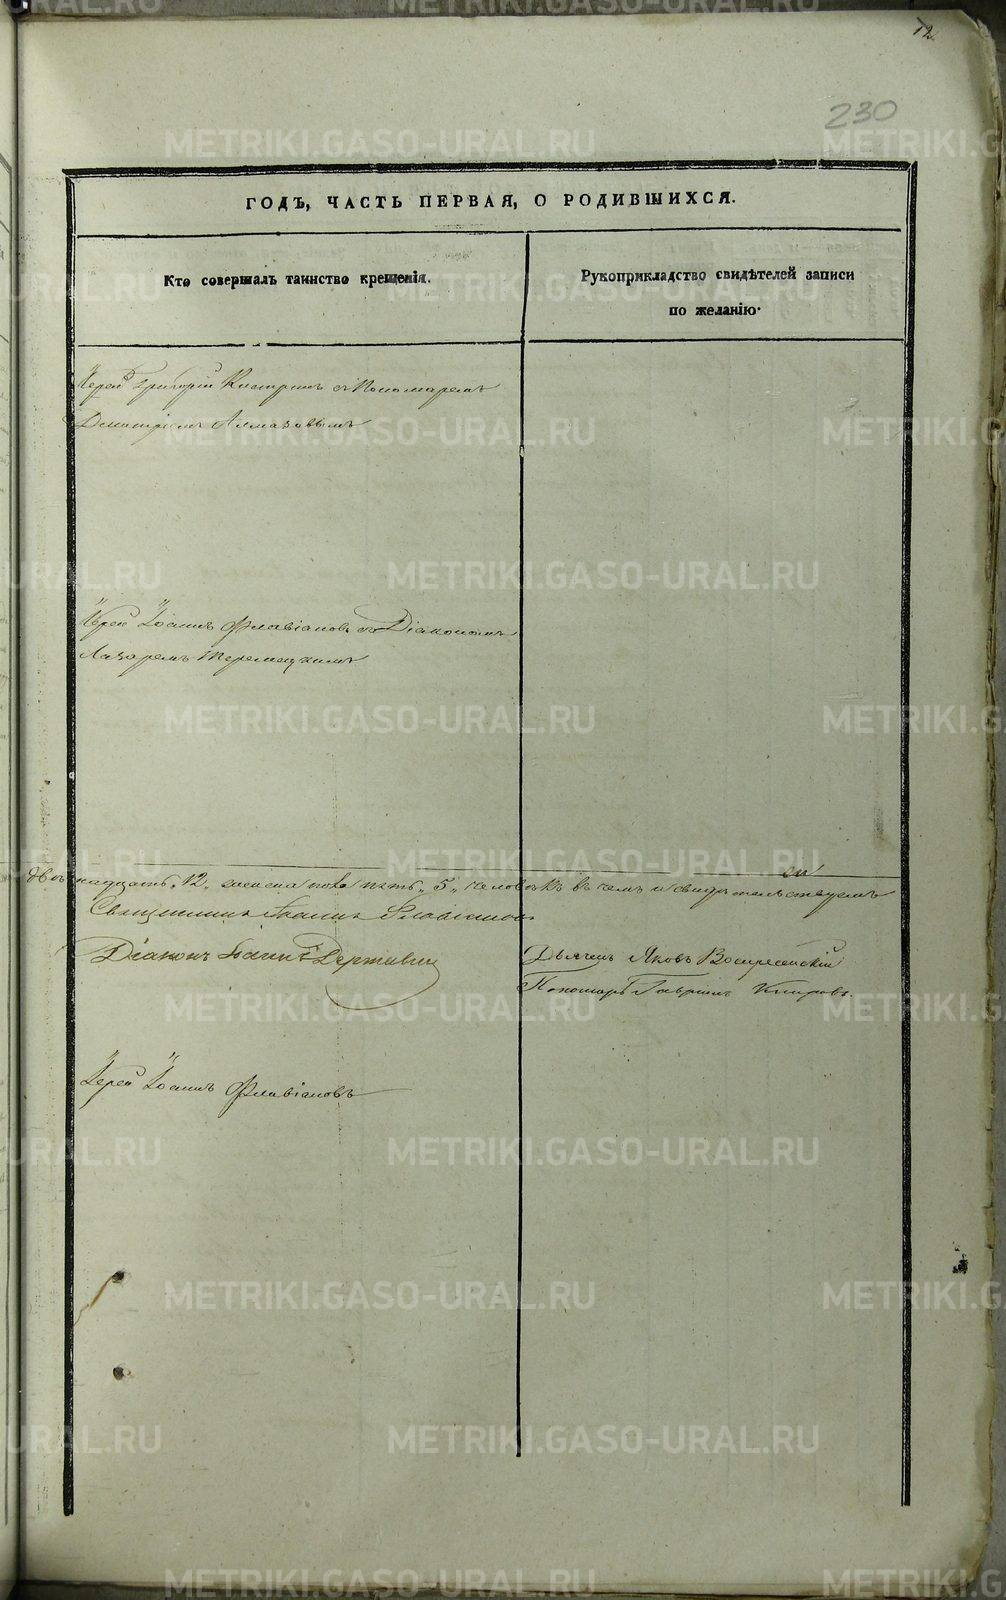 12
230
ГОДЪ, ЧАСТЬ ПЕРВАЯ, О РОДИВШИХСЯ.
Кто совершалъ таинство крещенія.
Рукоприкладство свидѣтелей записи
по желанію.
Іерей Григорій с Пономаремъ
Димитріемъ Алмазовымъ
Іерей Іоаннъ Флавіановъ съ Діакономъ
Лазоремъ
двенадцать „12„ пола пять „5„ человѣкъ въ чемъ и свидѣтельствуемъ
Священникъ Іоаннъ Флавіановъ
Діаконъ Іоаннъ Державинъ
Дьячекъ Яковъ Воскресенскій
Пономарь Гавриилъ Кипровъ.
Іерей Іоаннъ Флавіановъ
METRIKI.GASO-URAL.RU